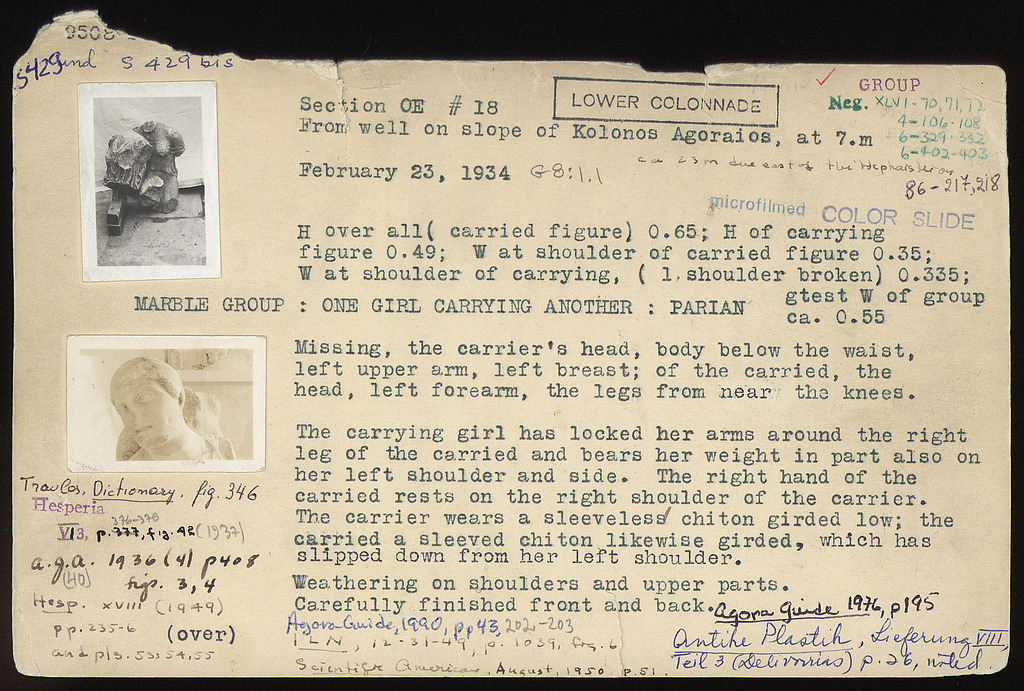 9508
S429 and S 429 bis
Section OE # 18
LOWER COLONNADE
GROUP
Neg. XLVI-70,71,72
4-106-108
6-329-332
6-402-403
From well on slope of Kolonos Agoraios, at 7.m
ca 23 m due east of the Hephaisteion
February 23, 1934 G8:1.1
86-217,218
microfilmed COLOR SLIDE
H over all( carried figure) 0.65; H of carrying
figure 0.49; W at shoulder of carried figure 0.35;
W at shoulder of carrying, ( l. shoulder broken) 0.335;
gtest W of group
ca. 0.55
MARBLE GROUP : ONE GIRL CARRYING ANOTHER : PARIAN
Missing, the carrier's head, body below the waist,
left upper arm, left breast; of the carried, the
head, left forearm, the legs from near the knees.
The carrying girl has locked her arms around the right
leg of the carried and bears her weight in part also on
her left shoulder and side. The right hand of the
carried rests on the right shoulder of the carrier.
The carrier wears a sleeveless chiton girded low; the
carried a sleeved chiton likewise girded, which has
slipped down from her left shoulder.
Weathering on shoulders and upper parts.
Carefully finished front and back.
Travlos, Dictionary. fig. 346
Hesperia
376-378
VI3, p.377, fig. 42 (1937)
a.J.a. 1936 (4) p408
(40) figs. 3, 4
Hesp. XVIII (1949)
pp. 235-6 (over)
and pls. 53,54,55
Agora Guide 1976, p195
Agora Guide, 1990, pp 43, 202-203
ILN, 12-31-49, p. 1039, fig. 6
Scientific American, August, 1950 p.51.
Antike Plastik, Lieferung VIII,
Teil 3 (Delivorrias) p. 26, noted.